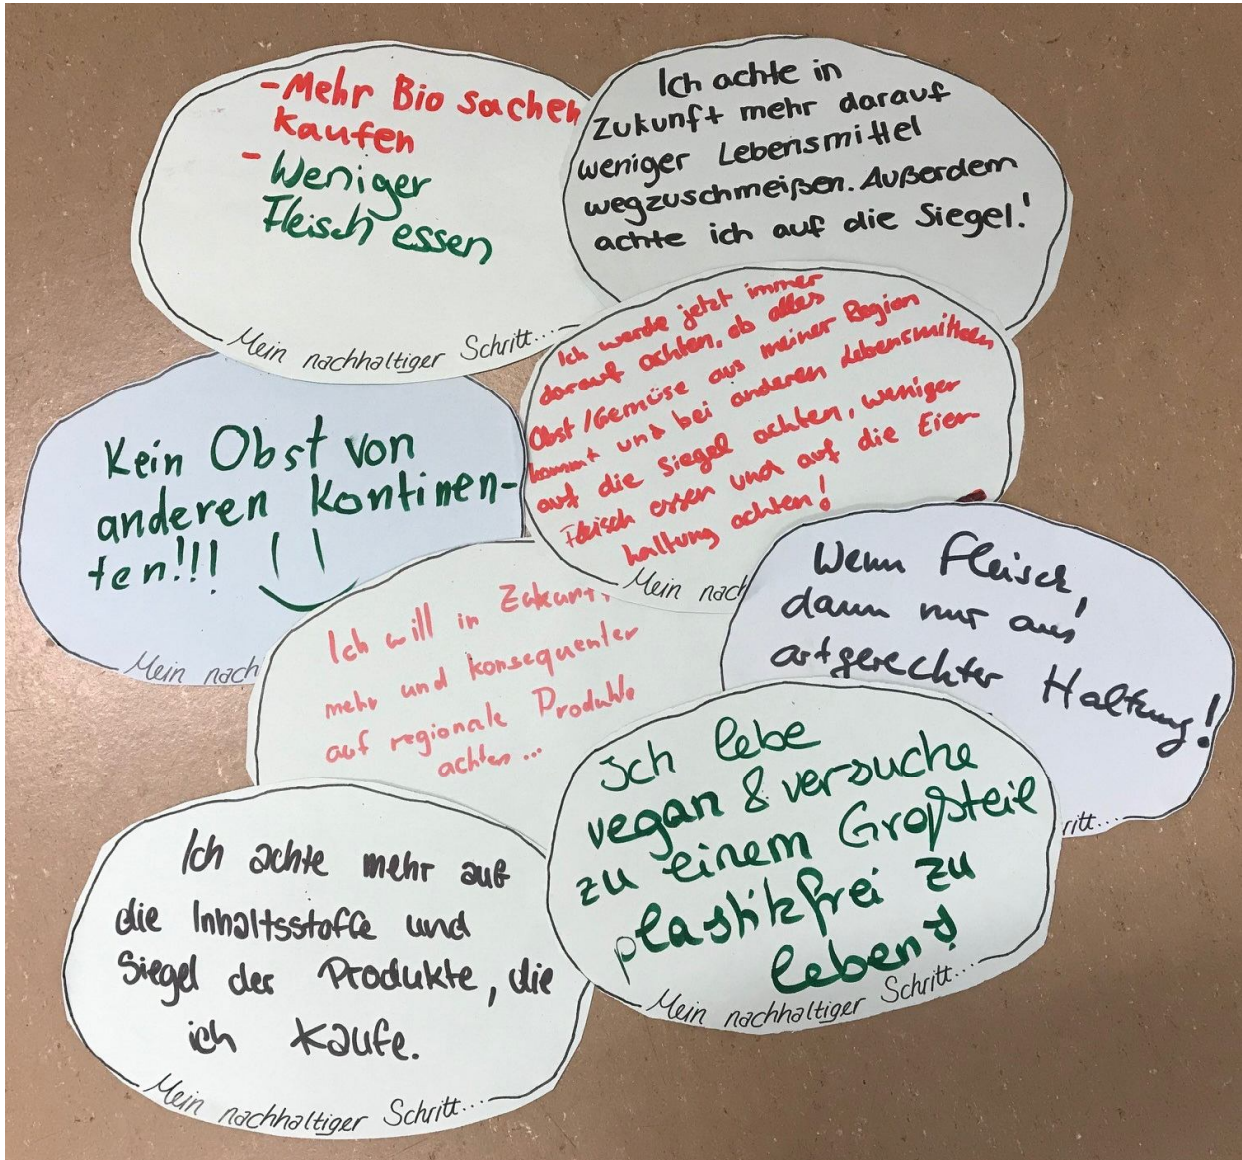 - Mehr Bio sachen
kaufen
- Weniger
Fleisch essen
Mein nachhaltiger Schritt...
Ich achte in
Zukunft mehr darauf
weniger Lebensmittel
wegzuschmeißen. Außerdem
achte ich auf die Siegel!
Ich werde jetzt immer
darauf achten, ob alles
Obst/Gemüse aus meiner Region
kommt und bei anderen Lebensmitteln
auf die Siegel achten, weniger
Fleisch essen und auf die Eier
haltung achten!
Mein nach
Kein Obst von
anderen Kontinen-
ten!!!
Mein nach
Ich will in Zukunft
mehr und konsequenter
auf regionale Produkte
achten...
Wenn Fleisch,
dann nur aus
artgerechter Haltung!
ritt...
Ich lebe
vegan & versuche
zu einem Großteil
plastikfrei zu
leben!
Mein nachhaltiger Schritt...
Ich achte mehr auf
die Inhaltsstoffe und
Siegel der Produkte, die
ich kaufe.
Mein nachhaltiger Schritt...